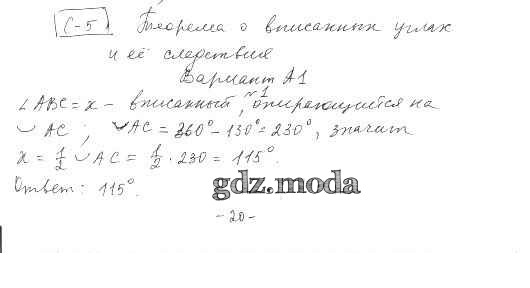 С-5 Теорема о вписанных углах
и её следствия
Вариант А1
№1
∠ABC = x – вписанный, опирающийся на
◡ AC ; ◡AC = 360° – 130° = 230°, значит
x = 1/2 ◡ AC = 1/2 · 230 = 115°.
Ответ: 115°.
gdz.moda
– 20 –